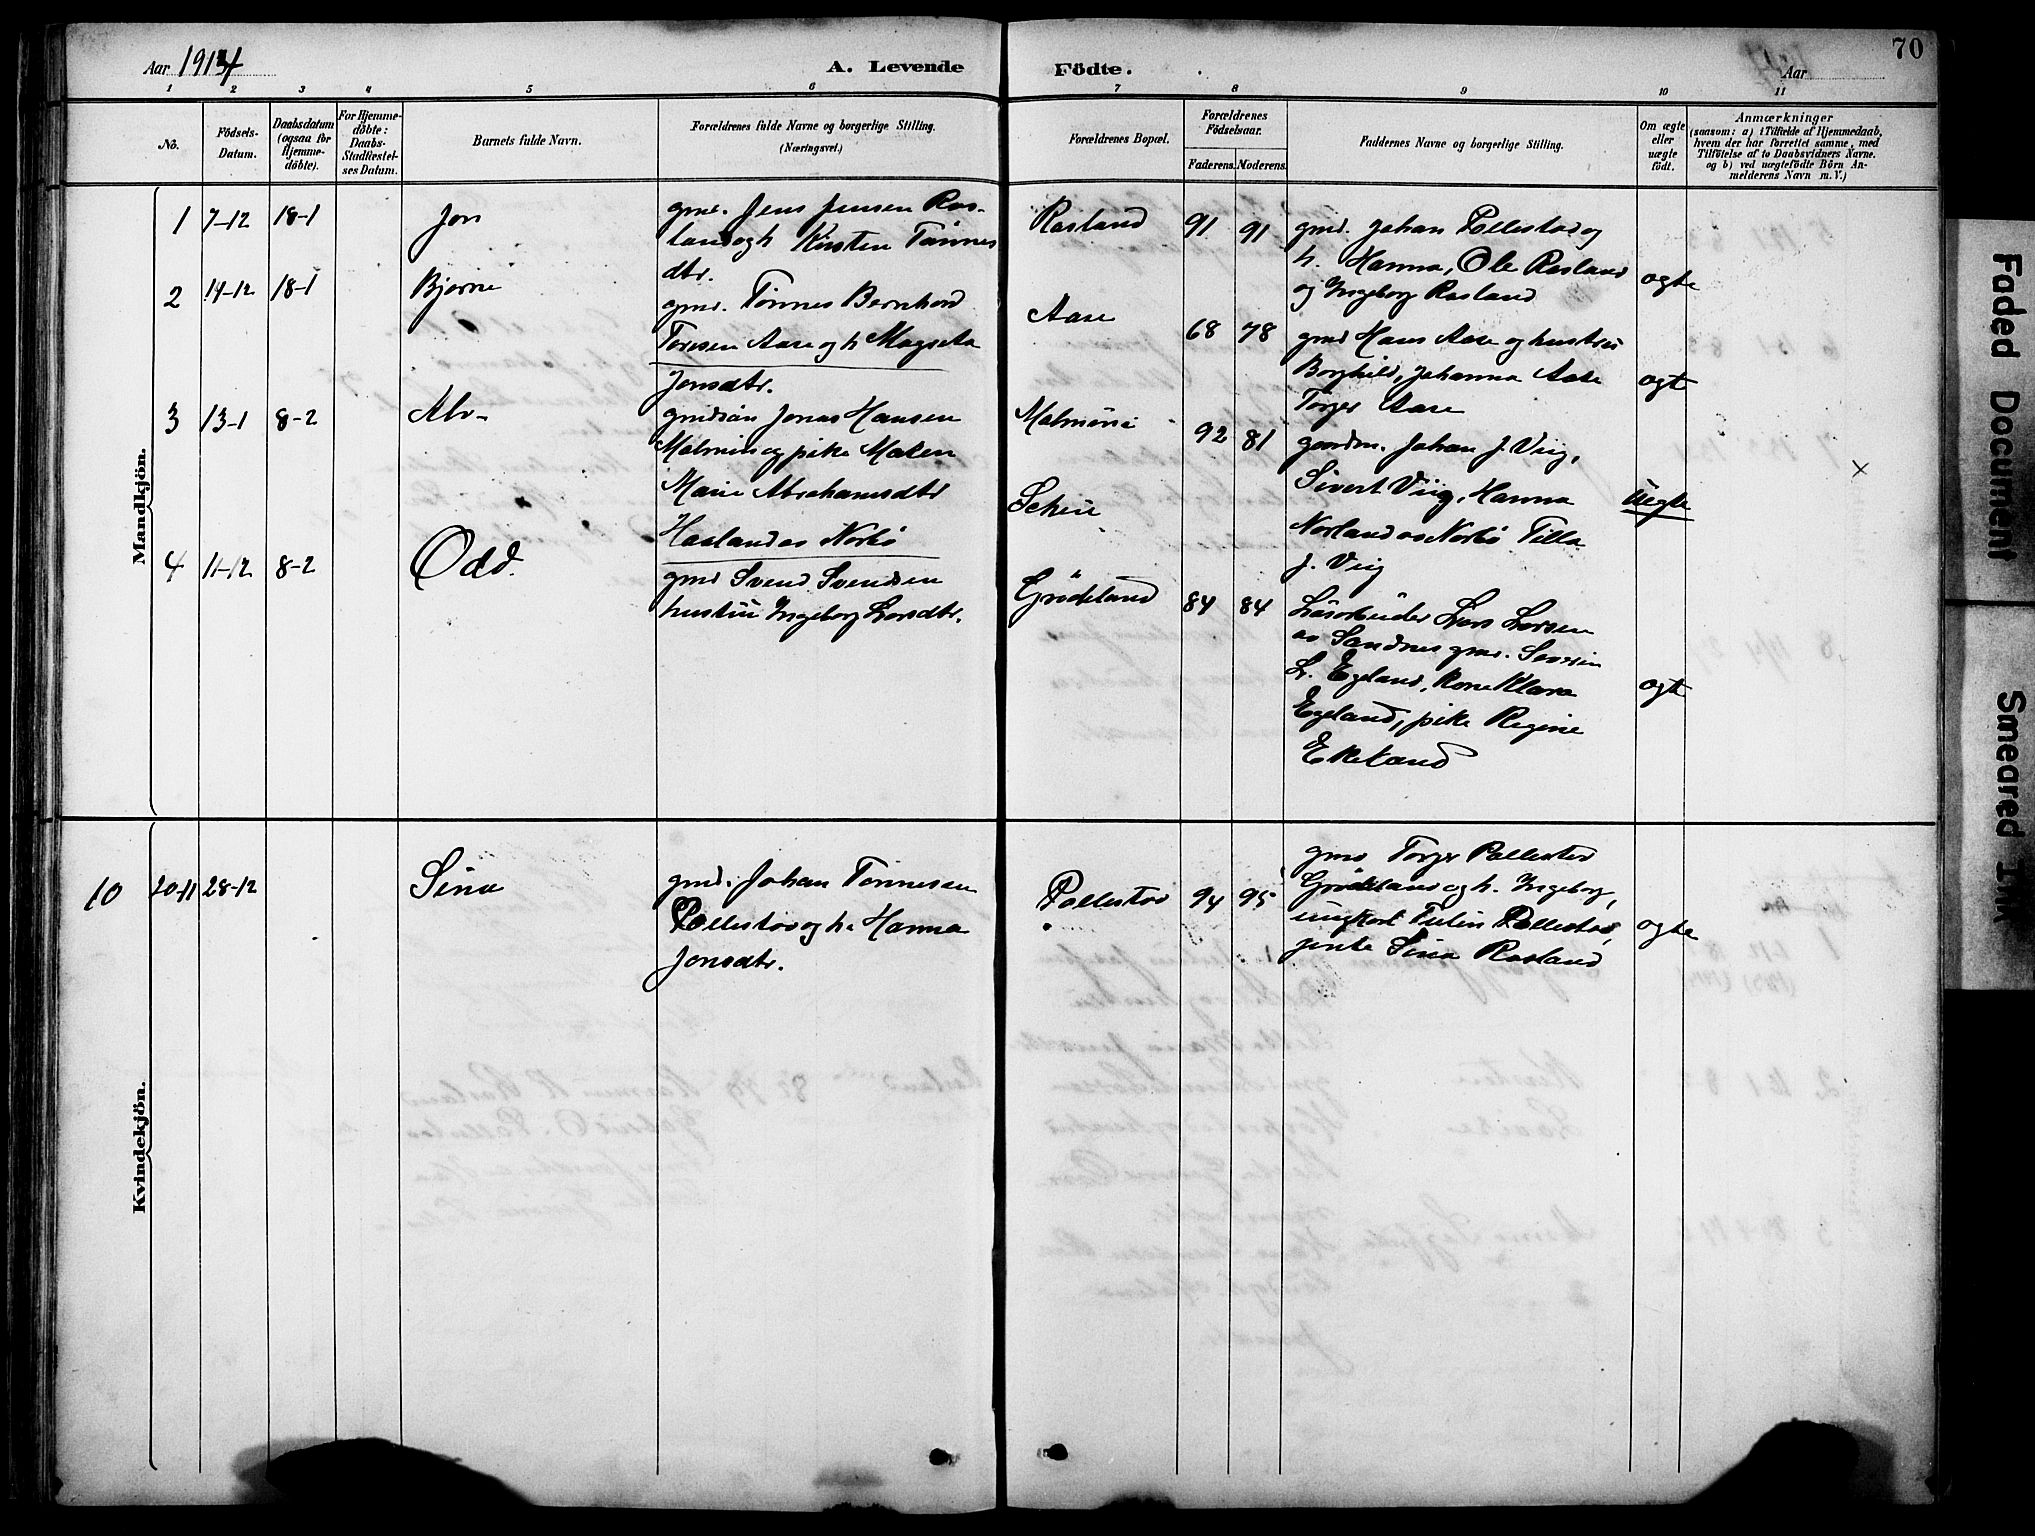 Aar 1914
A. Levende Födte.
Aar
70
1 2 3 4 5 6 7 8 9 10 11
No.
Födsels-Datum.
Daabsdatum (ogsaa for Hjemme-döbte).
For Hjemme-döbte: Daabs-Stadfæstel-ses Datum.
Barnets fulde Navn.
Forældrenes fulde Navne og borgerlige Stilling. (Næringsvei.)
Forældrenes Bopæl.
Forældrenes Födselsaar.
Faderens. Moderens.
Faddernes Navne og borgerlige Stilling.
Om ægte eller uægte födt.
Anmærkninger
(saasom: a) i Tilfælde af Hjemmedaab,
hvem der har forrettet samme, med
Tilföielse af to Daabsvidners Navne.
og b) ved uægtefödte Börn An-
melderens Navn m. V.)
Mandkjön.
1 7-12 18-1 Jon
gmd. Jens Jensen Ras-
land og h Kirsten Tønnes
dtr.
Rasland 91 91
gmd. Johan Pollestad og
h. Hanna, Ole Rasland
og Ingeborg Rasland
ægte
2 14-12 18-1 Bjarne
gmd. Tønnes Bernhard
Toresen Aase og h Magreta
Jonsdtr.
Aase 68 78
gmd Hans Aase og hustru
Borghild, Johanna Aase
Torger Aase
ægt
3 13-1 8-2 Alv-
gmdsøn Jonas Hansen
Malmin og pike Malen
Marie Abrahamsdtr
Haaland as Norbø
Malmini
Scheie
92 81
gaardm. Johan J. Viig,
Sivert Viig, Hanna
Norland as Norbø Tilla
J. Viig
uægte
x
4 11-12 8-2 Odd.
gmd Svend Svendsen
hustru Ingeborg Larsdtr.
Grødeland 84 84
Løsarbeider Lars Larsen
as Sandnes gmd. Sevrin
L. Egeland, kone Klara
Egeland, pike Regine
Ekeland
ægt
Kvindekjön.
10 20-11 28-12 Sina
gmd. Johan Tønnesen
Pollestad og h. Hanna
Jonsdtr.
Pollestad 94 95
gmd Torger Pollestad
Grødeland og h. Ingeborg,
ungkarl Tulin Pollestad,
jente Sina Rasland
ægte
Faded Document
Smeared Ink